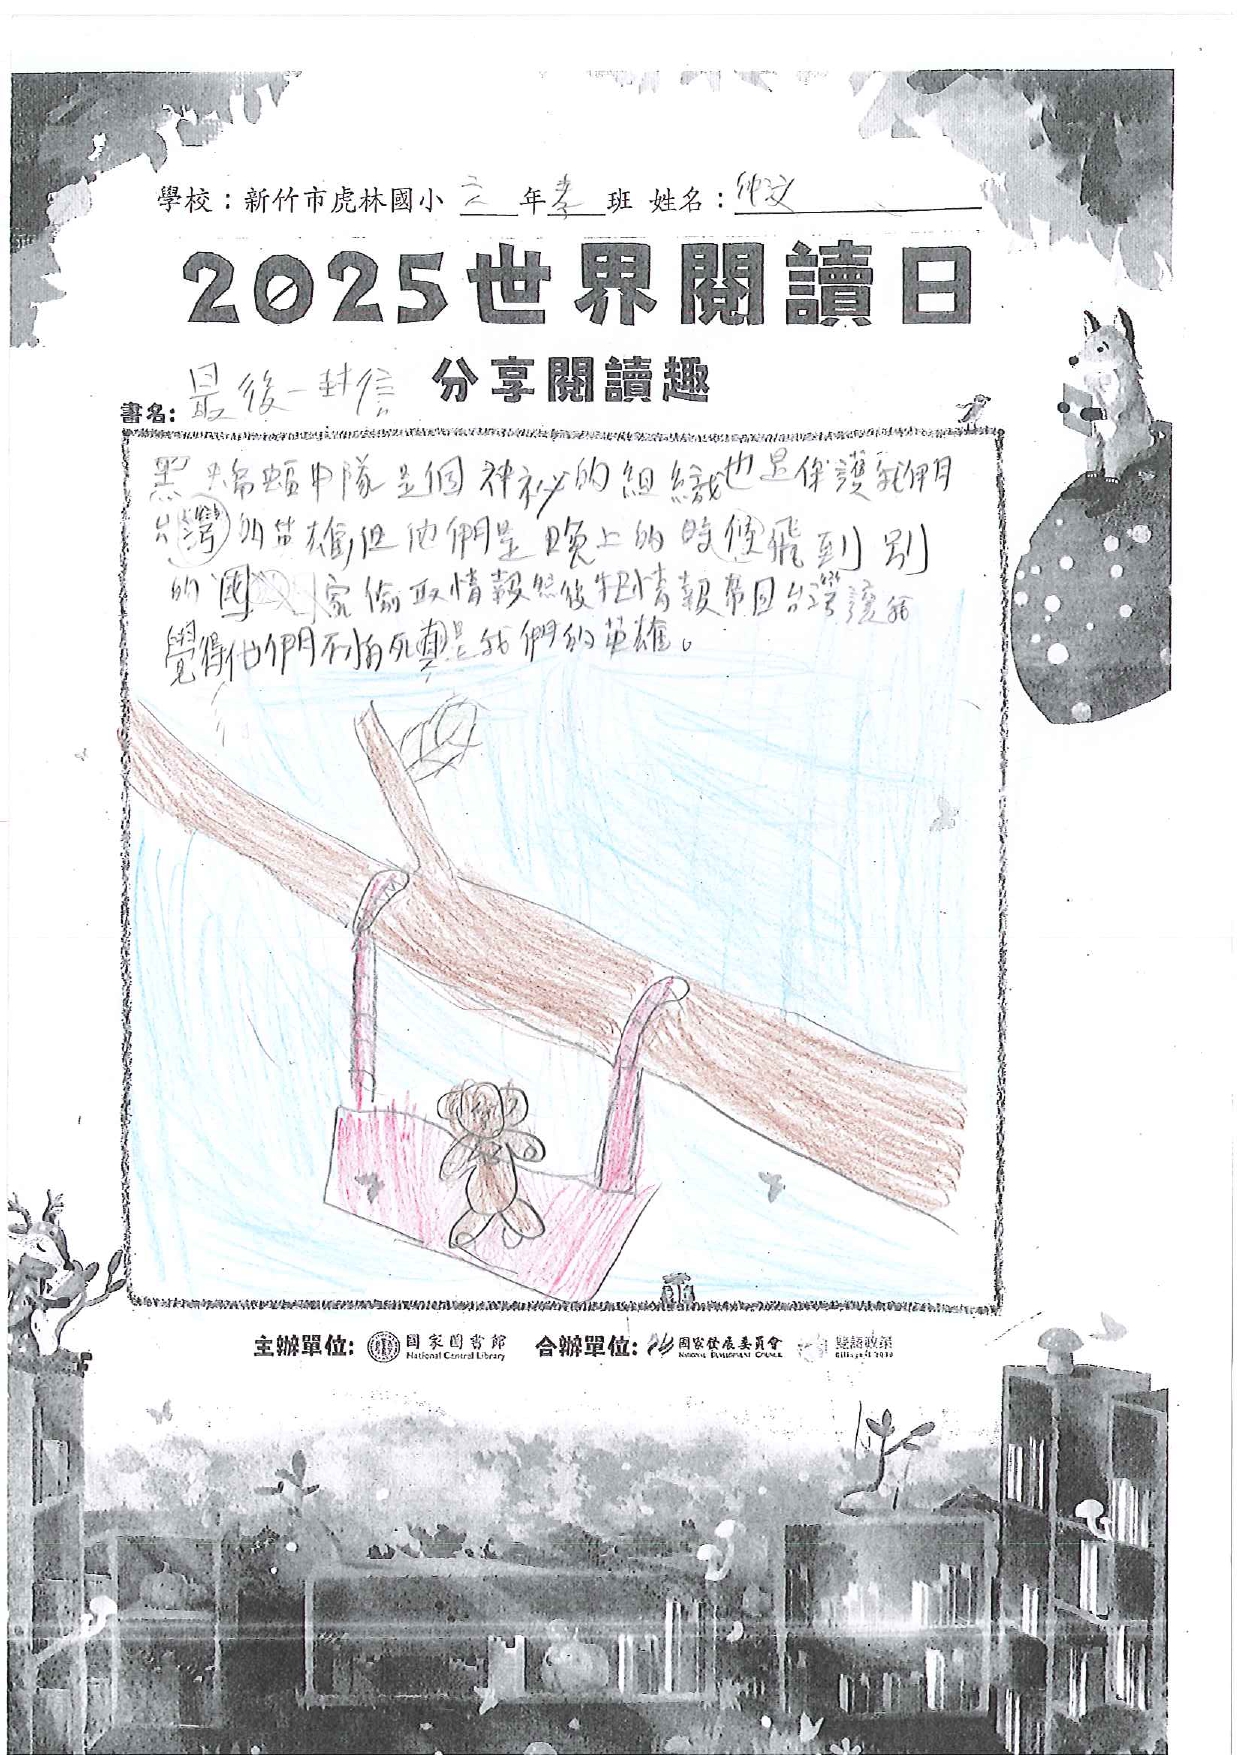 學校：新竹市虎林國小 六 年 孝 班 姓名：仲文
2025世界閱讀日
分享閱讀趣
書名：最後一封信
黑蝙蝠中隊是個神祕的組織也是保護我們
台灣的英雄,但他們是晚上的時候飛到別
的國家偷取情報然後把情報帶回台灣讓我
覺得他們不怕死真是我們的英雄。
主辦單位: 國家圖書館 National Central Library 合辦單位: 國家發展委員會 NATIONAL DEVELOPMENT COUNCIL 雙語政策